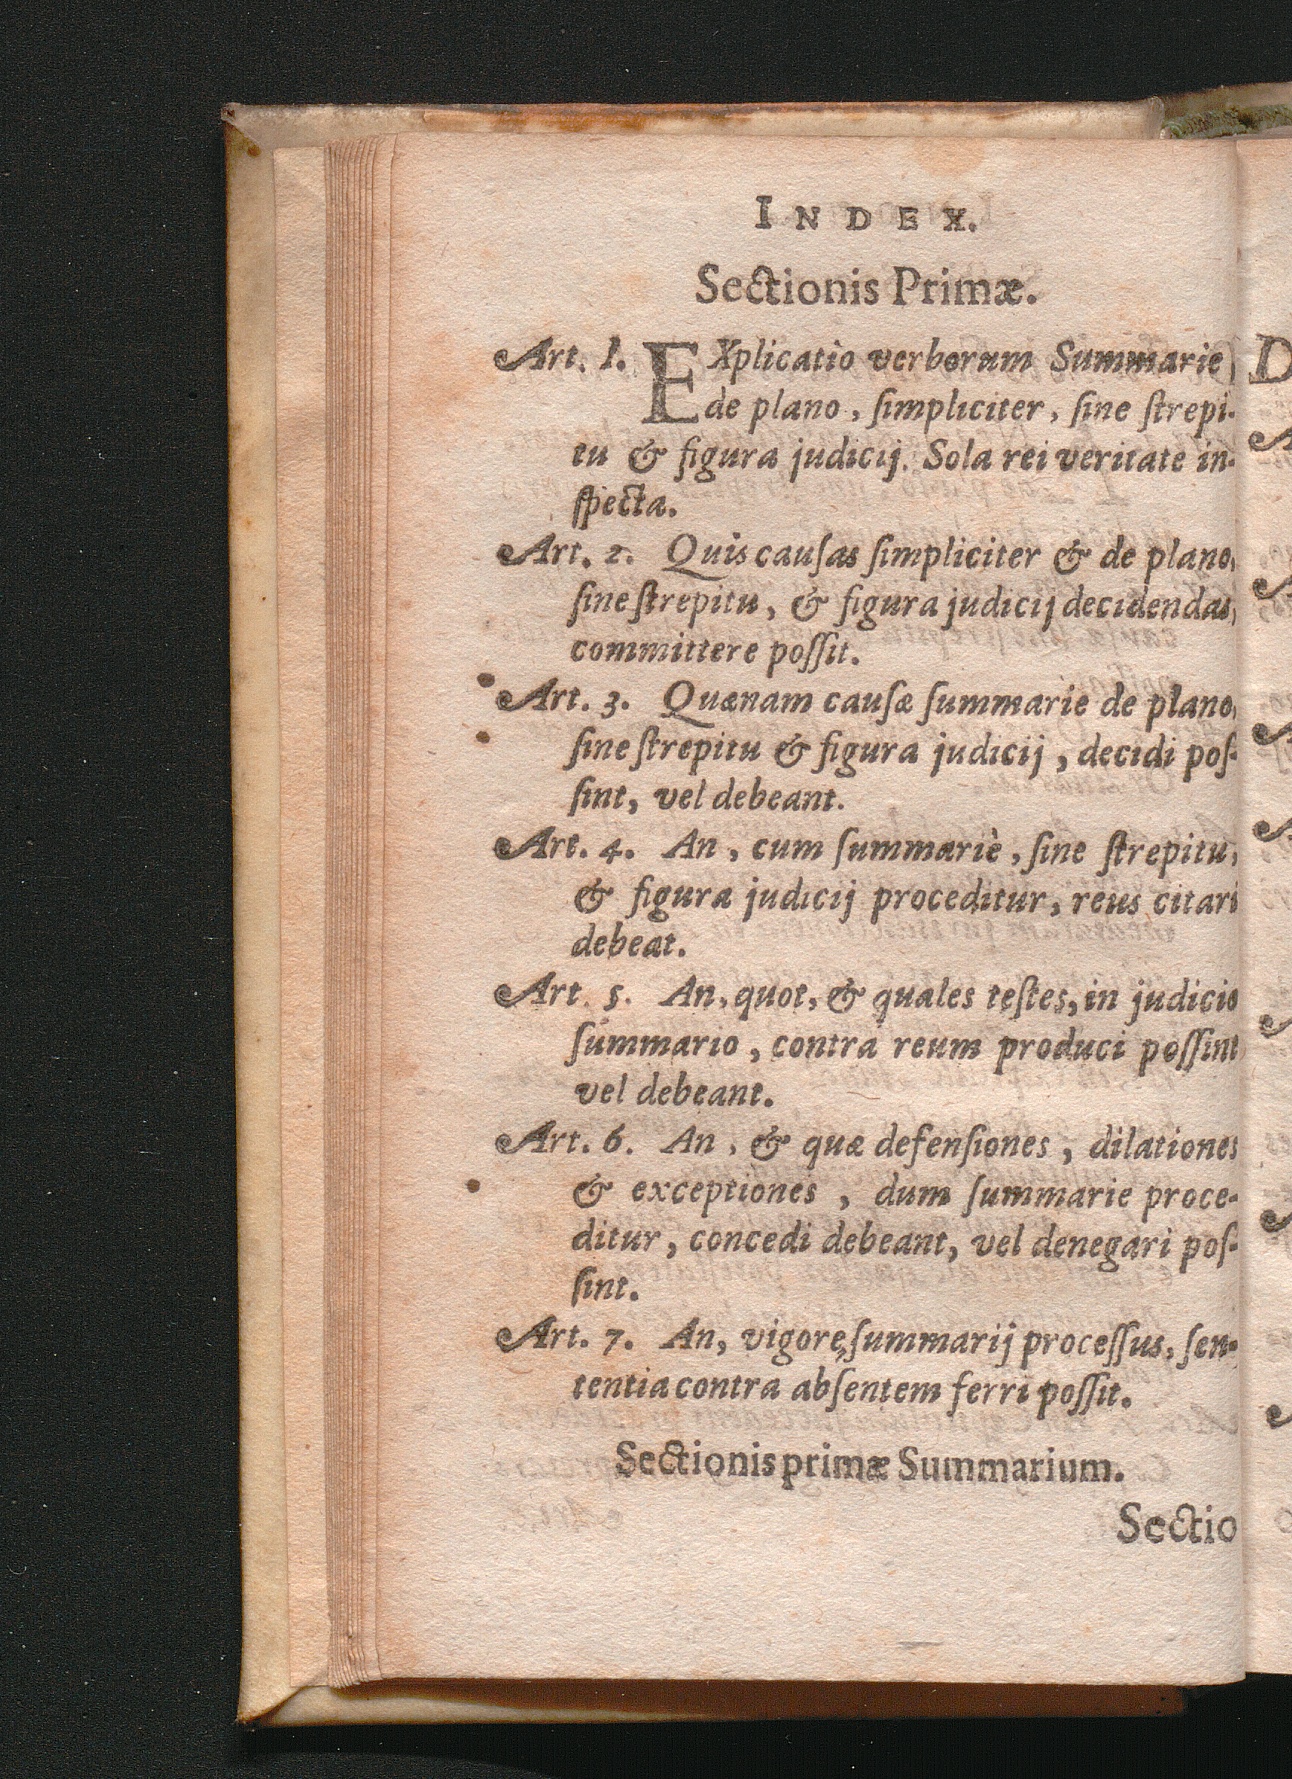 INDEX.
Sectionis Primæ.
Art. 1. EXplicatio verborum Summarie,
de plano, ſimpliciter, ſine ſtrepi-
tu & figura judicij. Sola rei veritate in-
ſpecta.
Art. 2. Quis cauſas ſimpliciter & de plano,
ſine ſtrepitu, & figura judicij decidendas,
committere poſſit.
Art. 3. Quænam cauſæ ſummarie de plano,
ſine ſtrepitu & figura judicij, decidi poſ-
ſint, vel debeant.
Art. 4. An, cum ſummariè, ſine ſtrepitu,
& figura judicij proceditur, reus citari
debeat.
Art. 5. An, quot, & quales teſtes, in judicio
ſummario, contra reum produci poſſint
vel debeant.
Art. 6. An, & quæ defenſiones, dilationes
& exceptiones, dum ſummarie proce-
ditur, concedi debeant, vel denegari poſ-
ſint.
Art. 7. An, vigore, ſummarij proceſſus, ſen-
tentia contra abſentem ferri poſſit.
Sectionis primæ Summarium.
Sectio
D